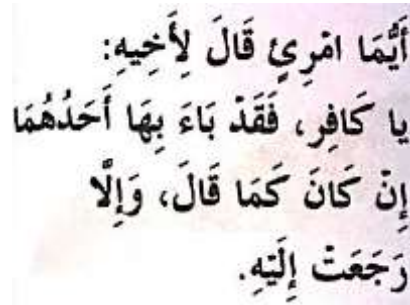 أَيُّمَا امْرِئٍ قَالَ لِأَخِيهِ:
يا كَافِر، فَقَدْ بَاءَ بِهَا أَحَدُهُمَا
إِنْ كَانَ كَمَا قَالَ، وَإِلَّا
رَجَعَتْ إِلَيْهِ.